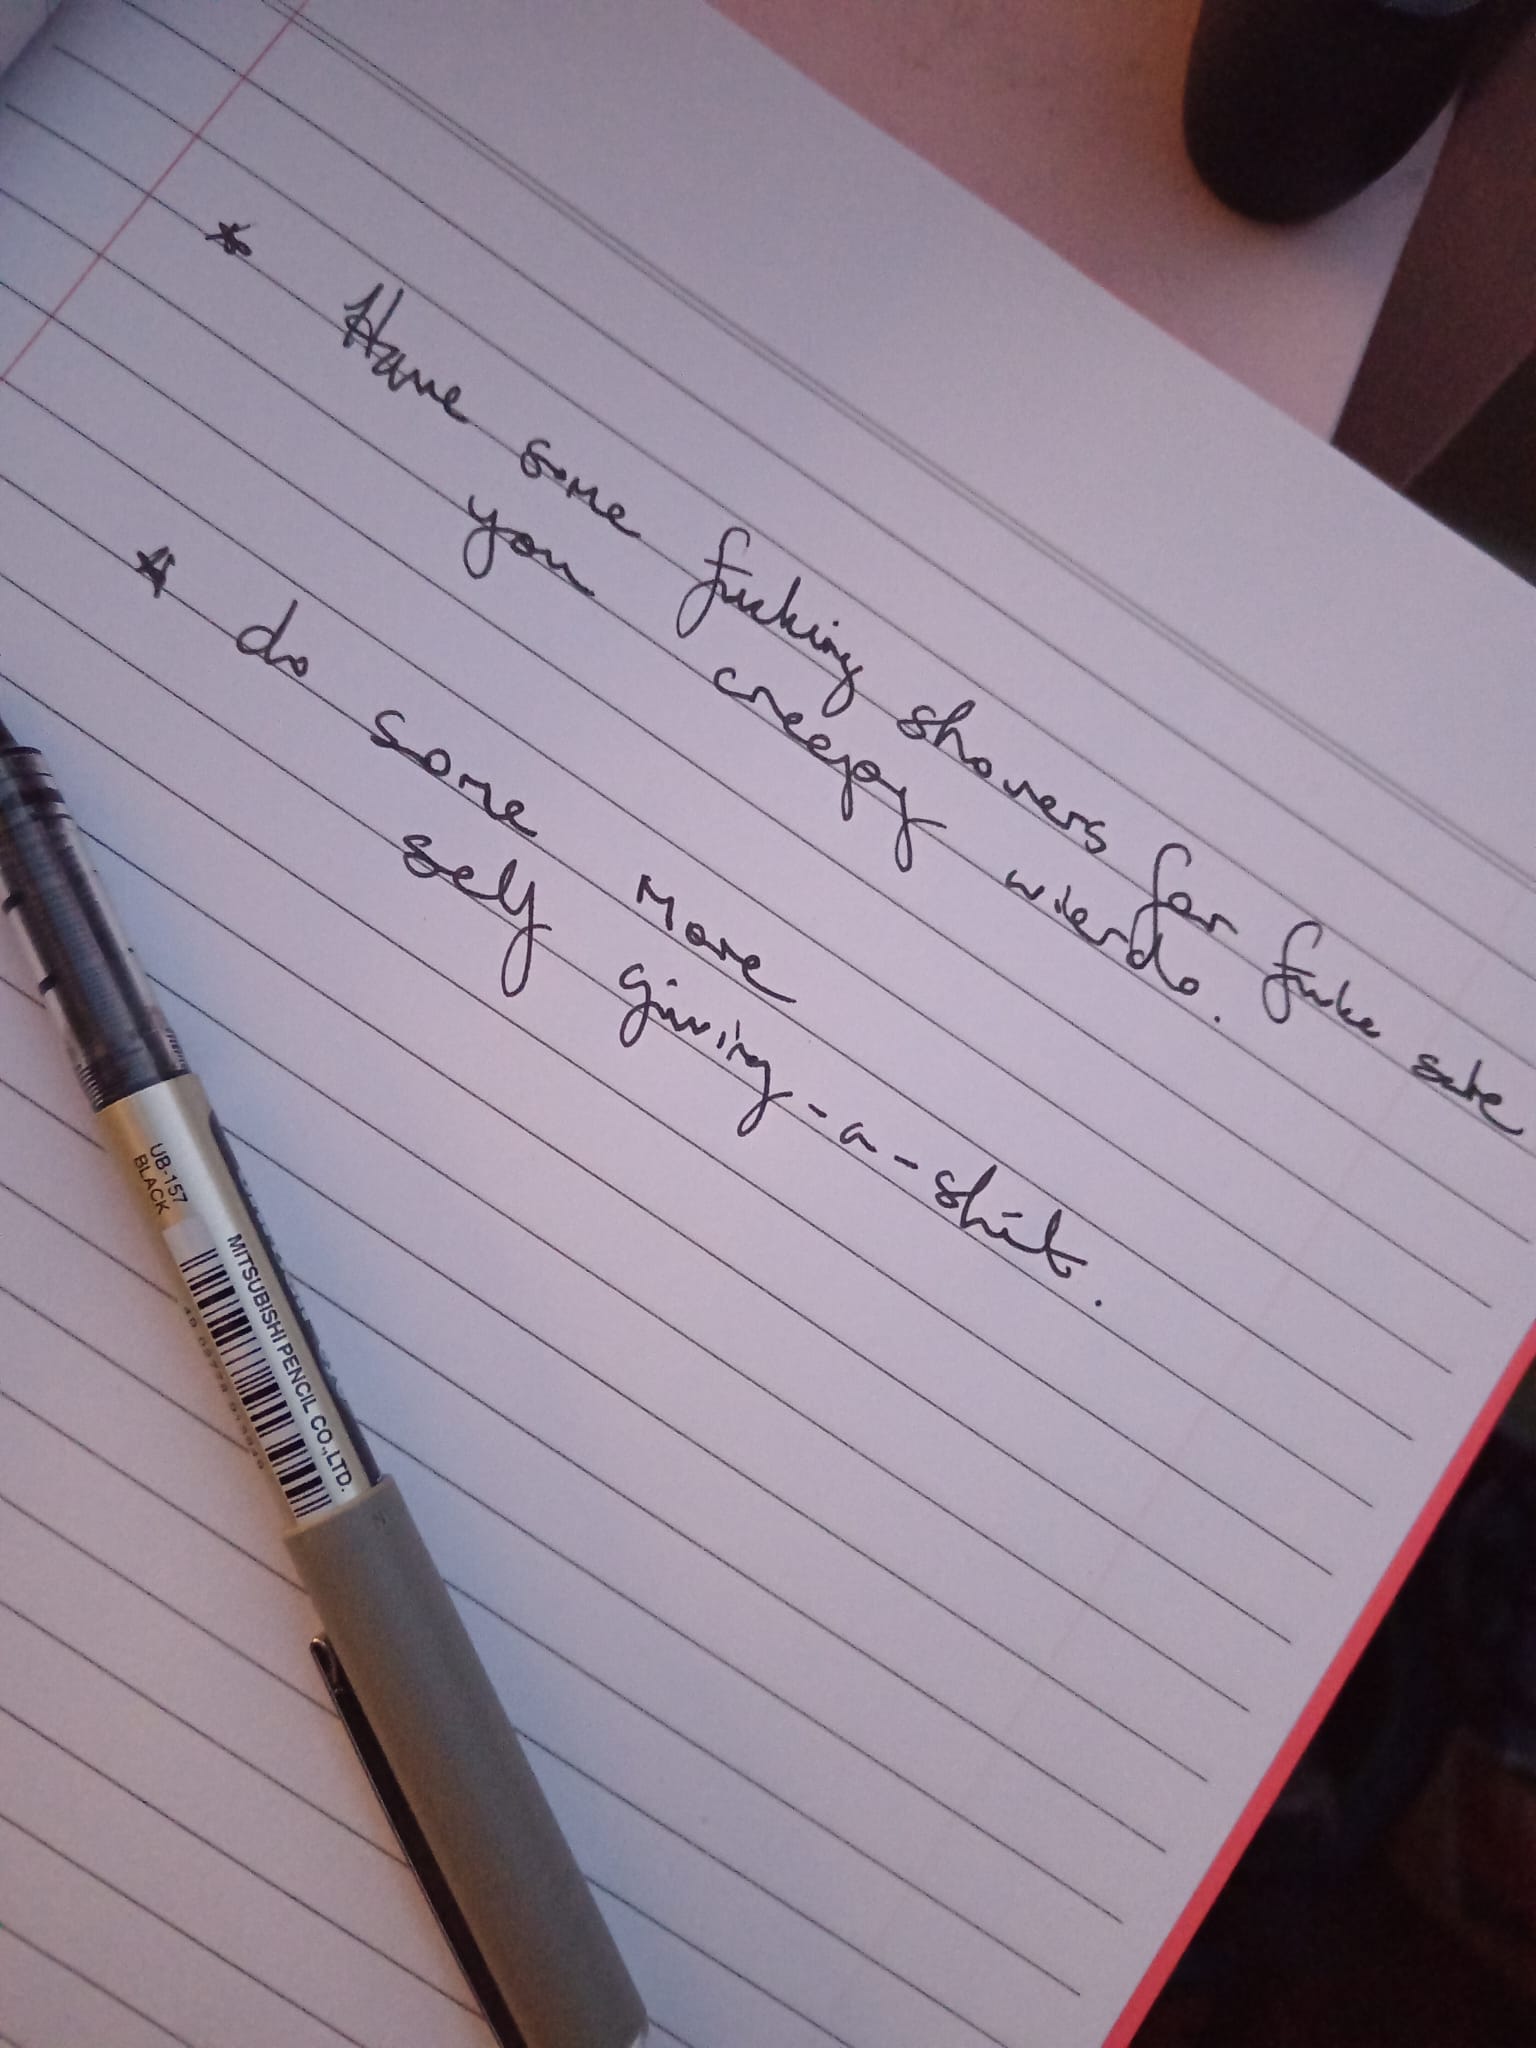 * Have some fucking showers for fucke sake
you creepy wierdo.
* do some more
self giving-a-shit.
UB-157
BLACK
MITSUBISHI PENCIL CO.,LTD.